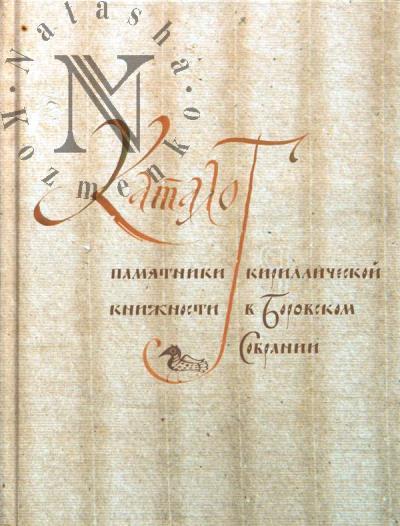 Natasha Kozmenko
N
Каталог
памятники кириллической
книжности в Боровском
Собрании